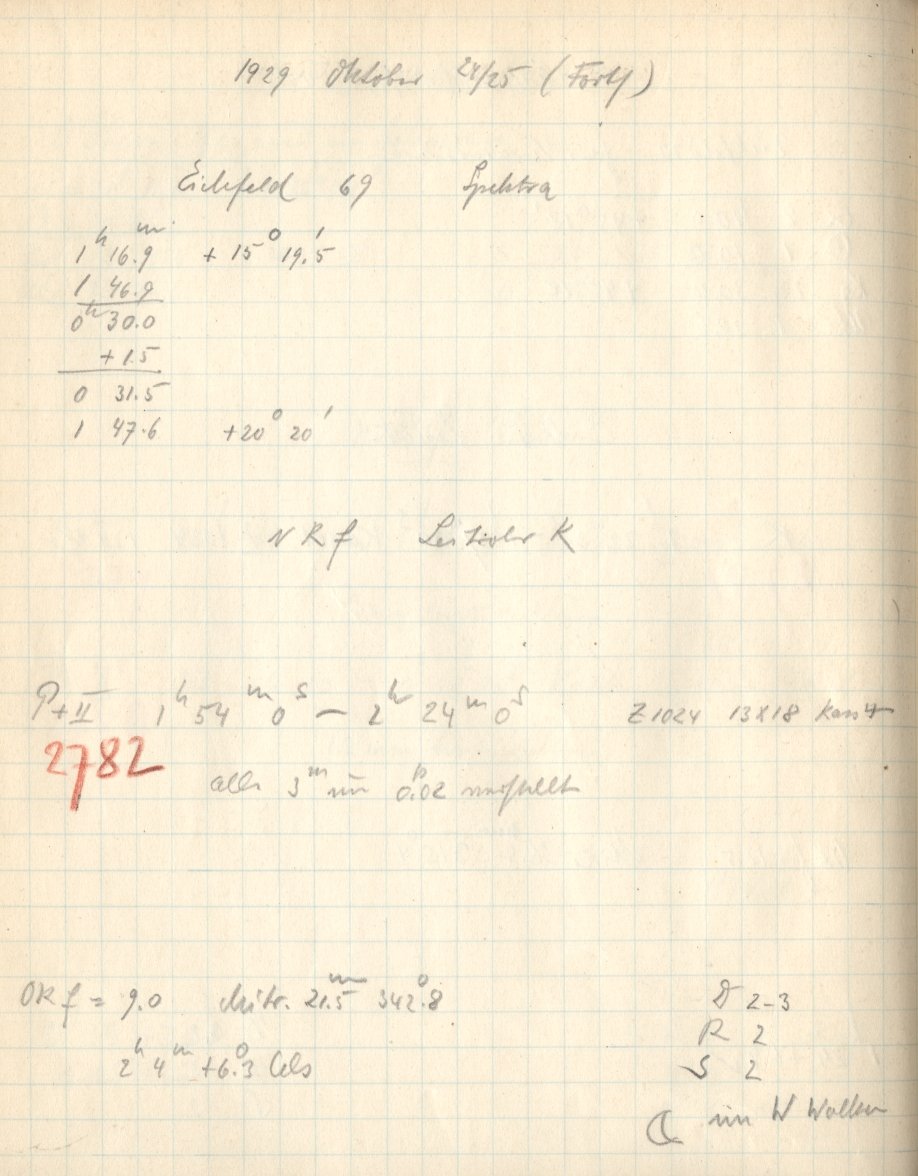 1929 Oktober 24/25 (Forts)
Eichfeld 69 Spektra
1ʰ 16.9ᵐ +15° 19.'5
1 46.9
0ʰ 30.0
+1.5
0 31.5
1 47.6 +20° 20'
N R f Leitrohr K
P+II 1ʰ 54ᵐ 0ˢ — 2ʰ 24ᵐ 0ˢ Z 1024 13x18 Kass 4
2782
alle 3ᵐ um 0.02 verstellt
OR f = 9.0 Mitr. 21.5ᵐ 342.°8
2ʰ 4ᵐ +6.°3 Cels
D 2-3
R 2
S 2
☾ im W Wolken